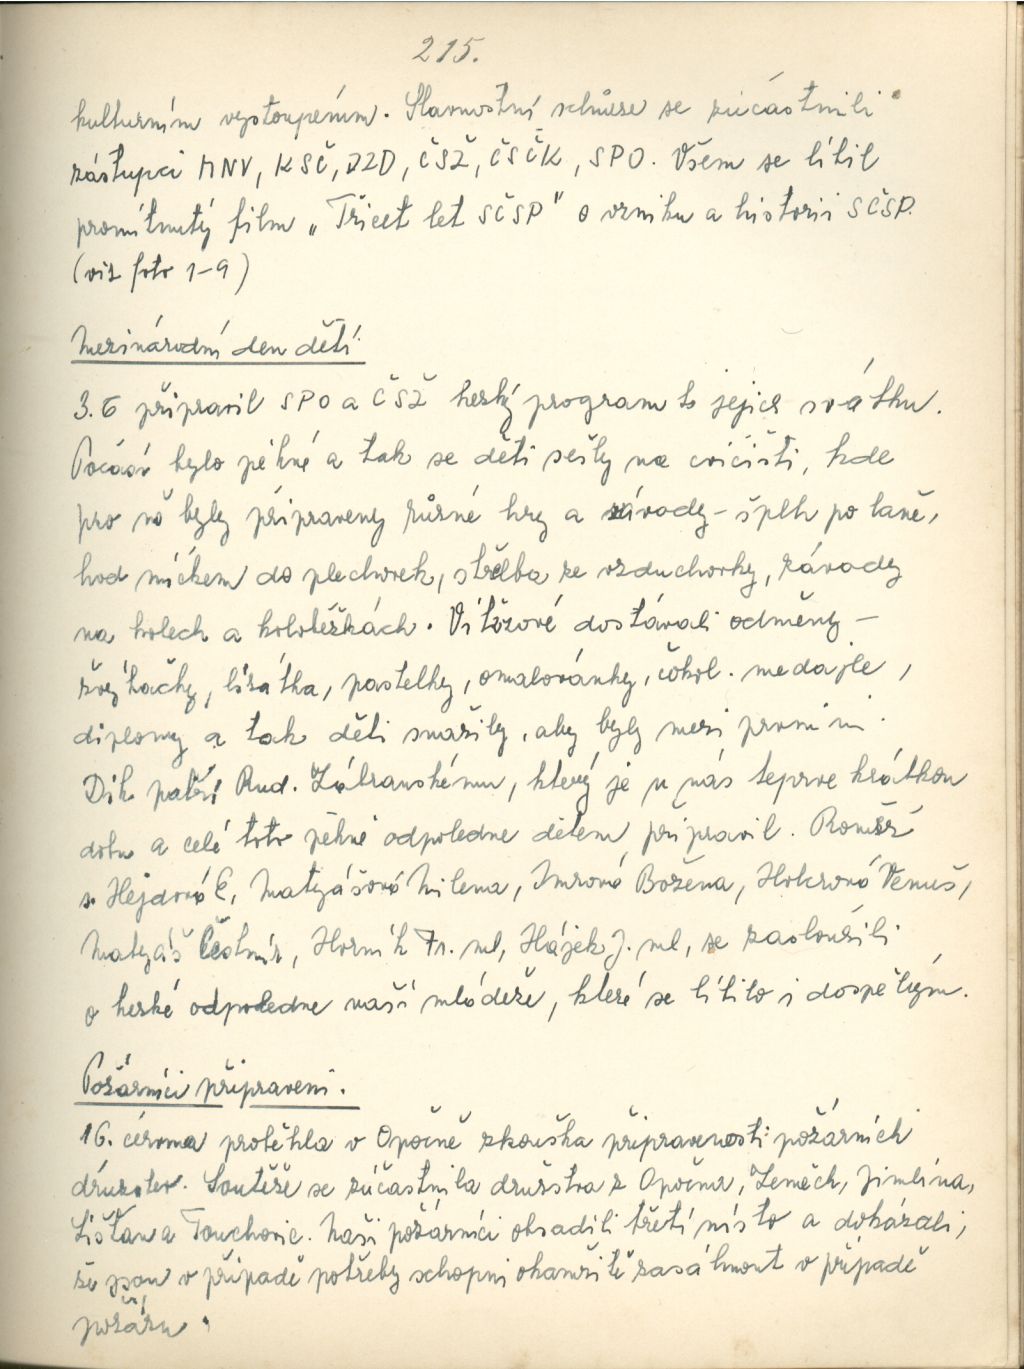 215.
kulturním vystoupením. Slavnostní schůze se zúčastnili
zástupci MNV, KSČ, JZD, ČSŽ, ČSČK, SPO. Všem se líbil
promítnutý film „Třicet let SČSP" o vzniku a historii SČSP.
(viz foto 1-9)
Mezinárodní den dětí
3.6 připravil SPO a ČSŽ hezký program k jejich svátku.
Počásí bylo pěkné a tak se děti sešly na cvičišti, kde
pro ně byly připraveny různé hry a závody - šplh po laně,
hod míčkem do plechovek, střelba ze vzduchovky, závody
na kolech a koloběžkách. Vítězové dostávali odměny -
žvýkačky, lízátka, pastelky, omalovánky, čokol. medajle,
diplomy a tak děti snažily, aby byly mezi prvními.
Dík patří Rud. Zábranskému, který je u nás teprve krátkou
dobu a celé toto pěkné odpoledne dětem připravil. Rovněž
s. Hejdová E, Matyášová Milena, Imrová Božena, Venuš,
Matyáš Čestmír, Horník Fr. ml, Hájek J. ml, se zasloužili
o hezké odpoledne naší mládeže, které se líbilo i dospělým.
Požárníci připraveni.
16. června proběhla v Opočně zkouška připravenosti požárních
družstev. Soutěže se zúčastnila družstva z Opočna, Zeměch, Jimlína,
Lišťan a Touchovic. Naši požárníci obsadili třetí místo a dokázali,
že jsou v případě potřeby schopni okamžitě zasáhnout v případě
požáru.